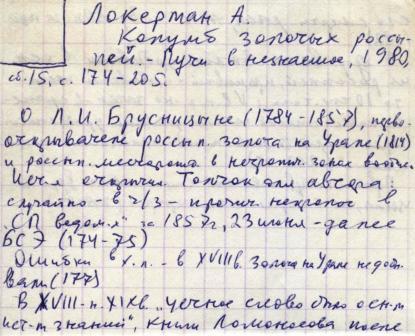 Локерман А.
Колумб золотых россы-
пей. - Пути в незнаемое, 1980,
сб. 15, с. 174-205.
О Л.И. Брусницыне (1784-1857), перво-
открывателе россып. золота на Урале (1814)
и россып. месторожд. в
Ист-я открытия. Толчок для автора:
случайно - в ч/з - прочит. некролог в
"СП ведом-х" за 1857 г, 23 июня - далее
БСЭ (174-75)
Ошибки в х.л. - в XVIII в. золота на Урале не добы-
вали (177)
В XVIII-н. XIX в. "устное слово было осн-м
ист-м знаний", книги Ломоносова после